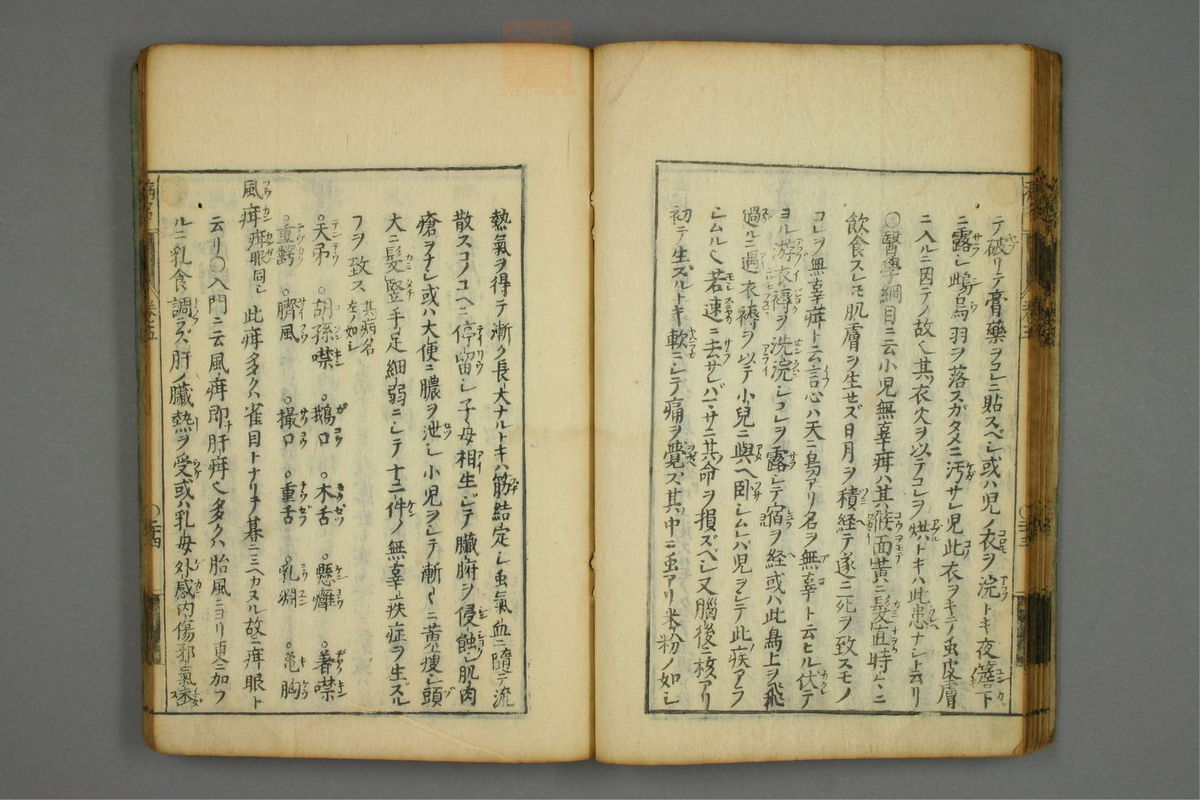 テ破リテ膏藥ヲコレニ貼スベシ或ハ児ノ衣ヲ浣トキ夜簷下
ニ露シ鴟鳥羽ヲ落スガタメニ汚サレ児此衣ヲキテノ虫皮膚
ニ入ルニ因テノ故也其衣火ヲ以テコレヲ烘トキハ此患ナシト云リ
〇醫學綱目ニ云小児無辜疳ハ其候面黄ニ髮直時々ニ
飲食スレモ肌膚ヲ生セズ日月ヲ積経テ遂ニ死ヲ致スモノ
コレヲ無辜疳ト云言心ハ天ニ鳥アリ名ヲ無辜ト云ヒル伏テ
ヨル游衣褥ヲ洗浣シコレヲ露シテ宿ヲ経或ハ此鳥上ヲ飛
過ルニ過衣褥ヲ以テ小兒ニ與ヘ卧シムレバ児ヲシテ此疾アラ
シムル也若速ニ去サレバマサニ其命ヲ損ズベシ又腦後ニ核アリ
初テ生ズルトキ軟ニシテ痛ヲ覺ズ其中ニ虫アリ米粉ノ如シ
熱氣ヲ得テ漸ク長大ナルトキハ筋結定シ虫氣血ニ隨テ流
散スコノユヘニ停留シ子母相生シテ臟腑ヲ侵蝕シ肌肉
瘡ヲナシ或ハ大便ニ膿ヲ泄シ小児ヲシテ漸々ニ黄痩シ頭
大ニ髮竪手足細弱ニシテ十二件ノ無辜疾症ヲ生ズル
フヲ致ス 其病名左ノ如シ
〇天弔 〇胡孫噤 〇鵝口 〇木舌 〇懸癰 〇着噤
〇重齶 〇臍風 〇撮口 〇重舌 〇乳 〇亀胸
風疳 疳眼同シ 此疳多クハ雀目トナリ子暮ニミヘカヌル故ニ疳眼ト
云リ〇入門ニ云風疳即肝疳也多クハ胎風ニヨリ更ニ加フ
ルニ乳食調ラズ肝ノ臟熱ヲ受或ハ乳母外感内傷邪氣
卷五
〇二十四